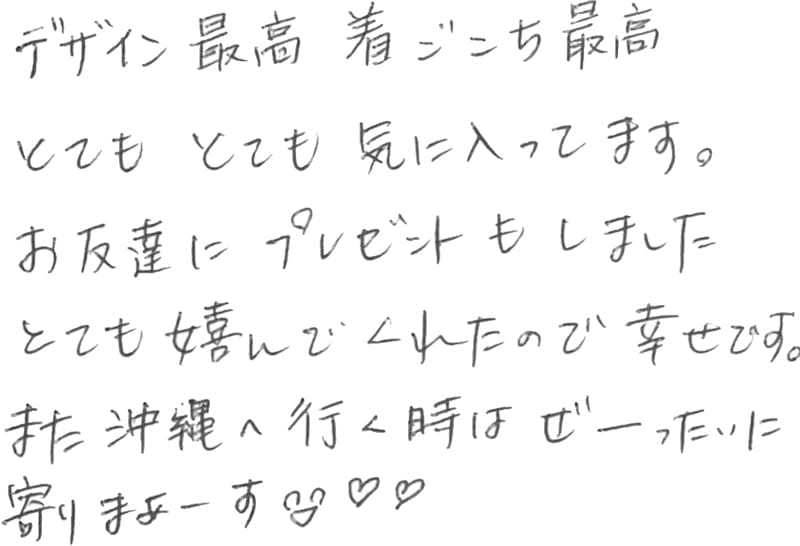 デザイン 最高 着ごこち 最高
とても とても 気に入ってます。
お友達に プレゼントもしました
とても嬉んでくれたので幸せです。
また沖縄へ行く時はぜーったいに
寄りまぁーす☺♡♡